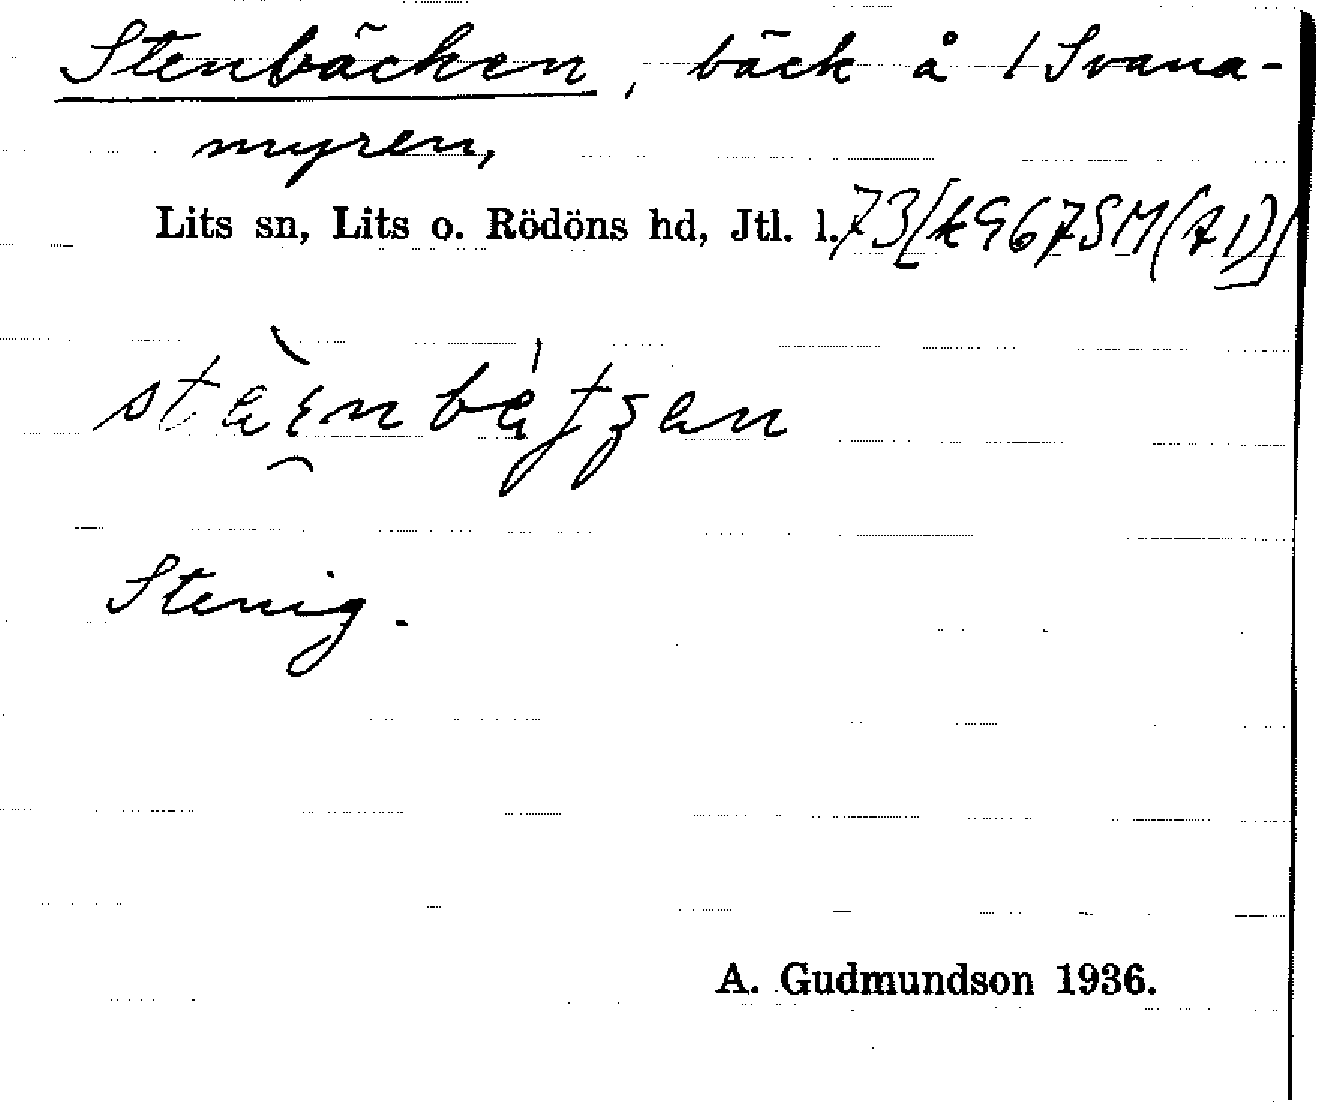 Stenbäcken, bäck å /Svana-
myren,
Lits sn, Lits o. Rödöns hd, Jtl. l. 73[k967SM(A1)]
Stenig.
A. Gudmundson 1936.